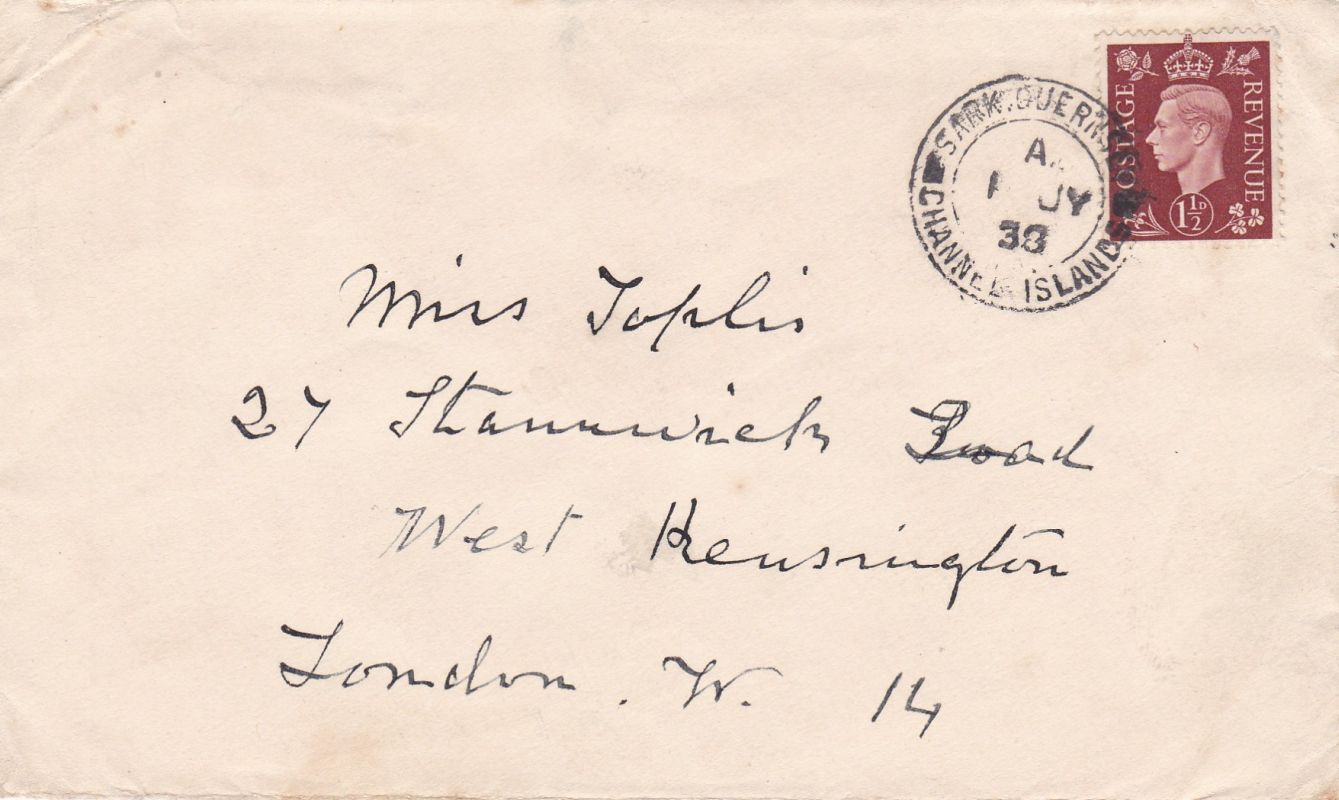 SARK. GUERNSEY
CHANNEL ISLANDS
A.
JY
38
POSTAGE
REVENUE
1½D
Miss Toplis
27 Stanwick Road
West Kensington
London. W. 14